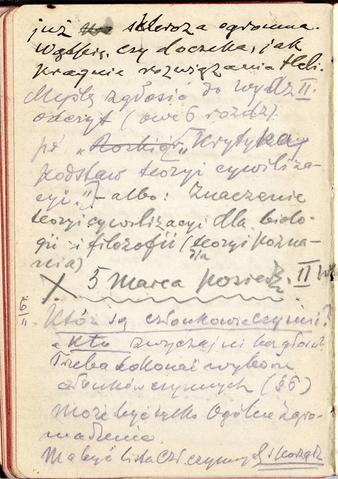 już skleroza ogromna.
Wątpię, czy doczeka, jak
pragnie rozwiązania
Myślę zgłosić do wydz II.
odczyt (owe 6 rozdz).
pt „Krytyka
podstaw teoryi cywiliza-
cyi" – albo: Znaczenie
teoryi cywilizacyi dla biolo-
gii i filozofii (teoryi pozna-
nia)
X 5 Marca posiedz. II
Któż są członkowie czynni?
a kto zwyczajni
Trzeba dokonać wyboru
członków czynnych (§6)
Może być tylko Ogólne zgro-
madzenie.
Ma być lista czł. czynnych i